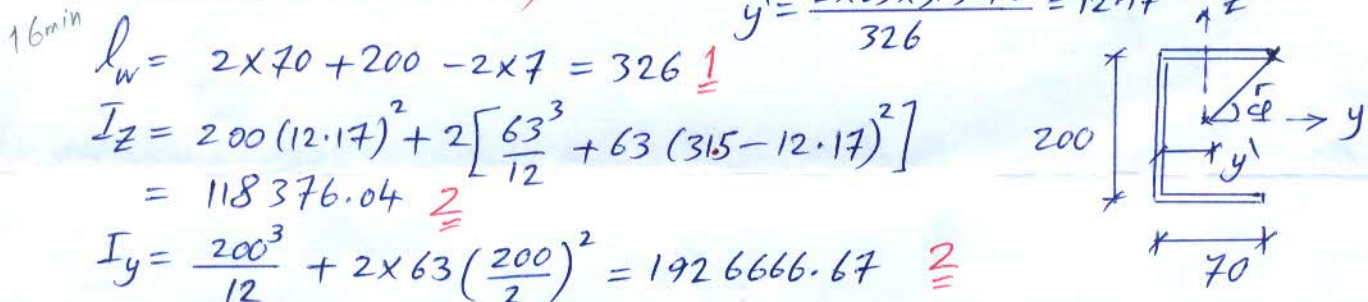 16min
y' = 326 = 12.17
l_w = 2×70 + 200 - 2×7 = 326 1
I_Z = 200(12.17)² + 2[63³/12 + 63(31.5 - 12.17)²]
= 118376.04 2
I_y = 200³/12 + 2×63(200/2)² = 1926666.67 2
z
r φ
y
200
y'
70